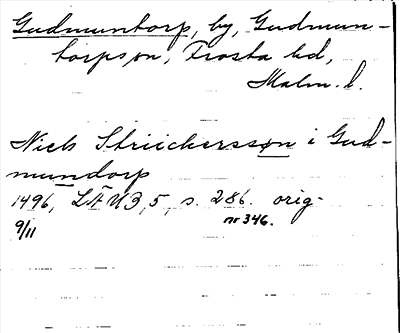 Gudmuntorp, by, Gudmun-
torps sn, Frosta hd,
Malm. l.
Niels Striickerssøn i Gud-
mundorp
1496, LÄU3,5, s. 286. orig.
9/11 nr 346.